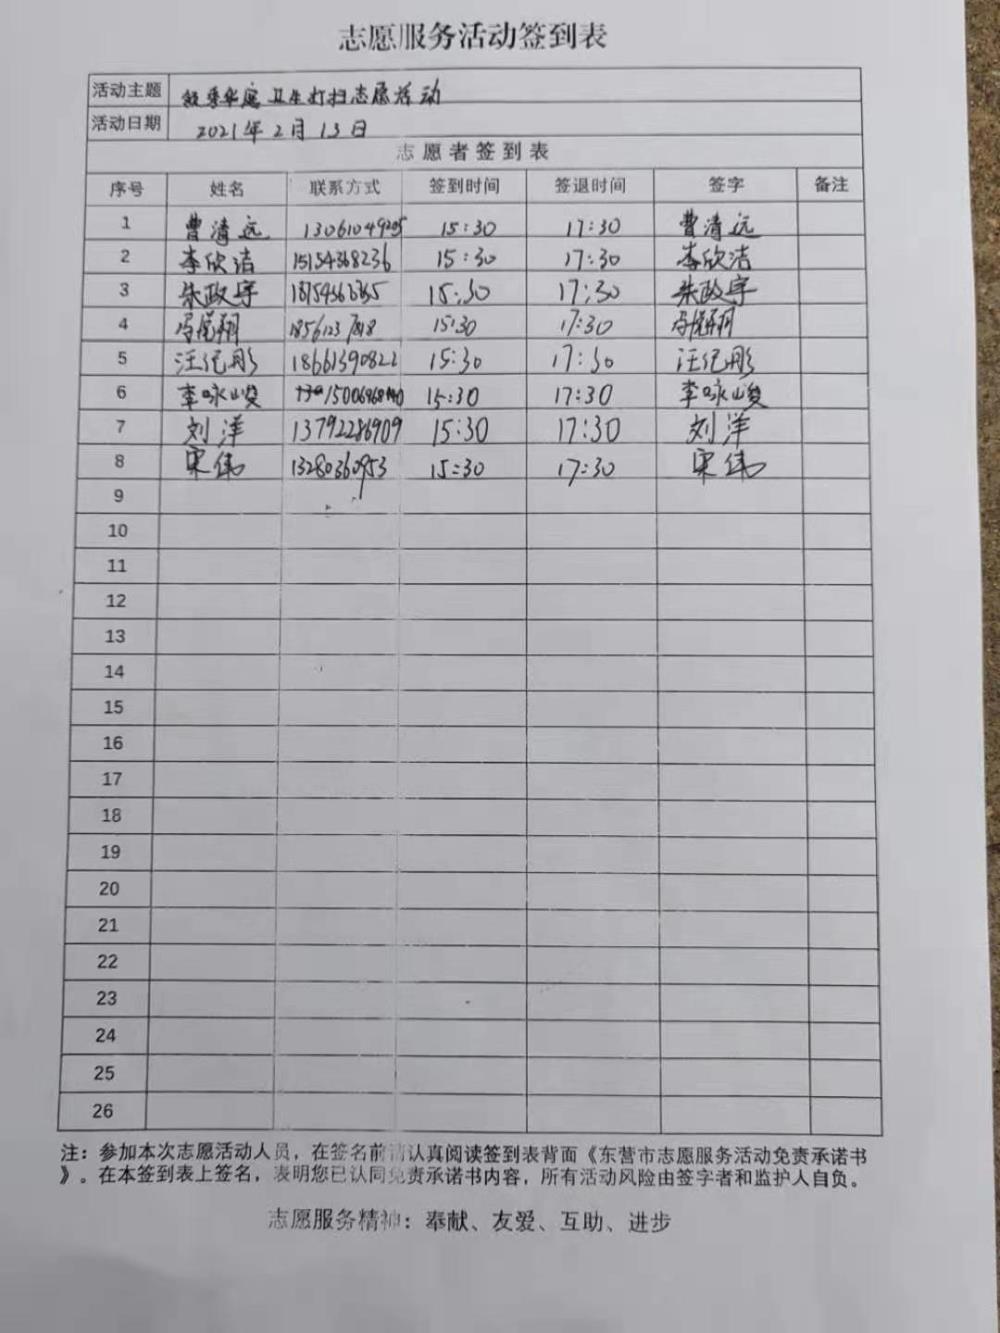 志愿服务活动签到表
活动主题 卫生打扫志愿活动
活动日期 2021年2月13日
志愿者签到表
序号 姓名 联系方式 签到时间 签退时间 签字 备注
1 曹清远 13061049205 15:30 17:30 曹清远
2 李欣洁 15154368236 15:30 17:30 李欣洁
3 朱政宇 15:30 17:30 朱政宇
4 15:30 17:30
5 汪纪彤 18661390822 15:30 17:30 汪纪彤
6 李咏峻 15:30 17:30 李咏峻
7 刘洋 13792286909 15:30 17:30 刘洋
8 宋伟 13280360953 15:30 17:30 宋伟
9
10
11
12
13
14
15
16
17
18
19
20
21
22
23
24
25
26
注：参加本次志愿活动人员，在签名前请认真阅读签到表背面《东营市志愿服务活动免责承诺书
》。在本签到表上签名，表明您已认同免责承诺书内容，所有活动风险由签字者和监护人自负。
志愿服务精神：奉献、友爱、互助、进步